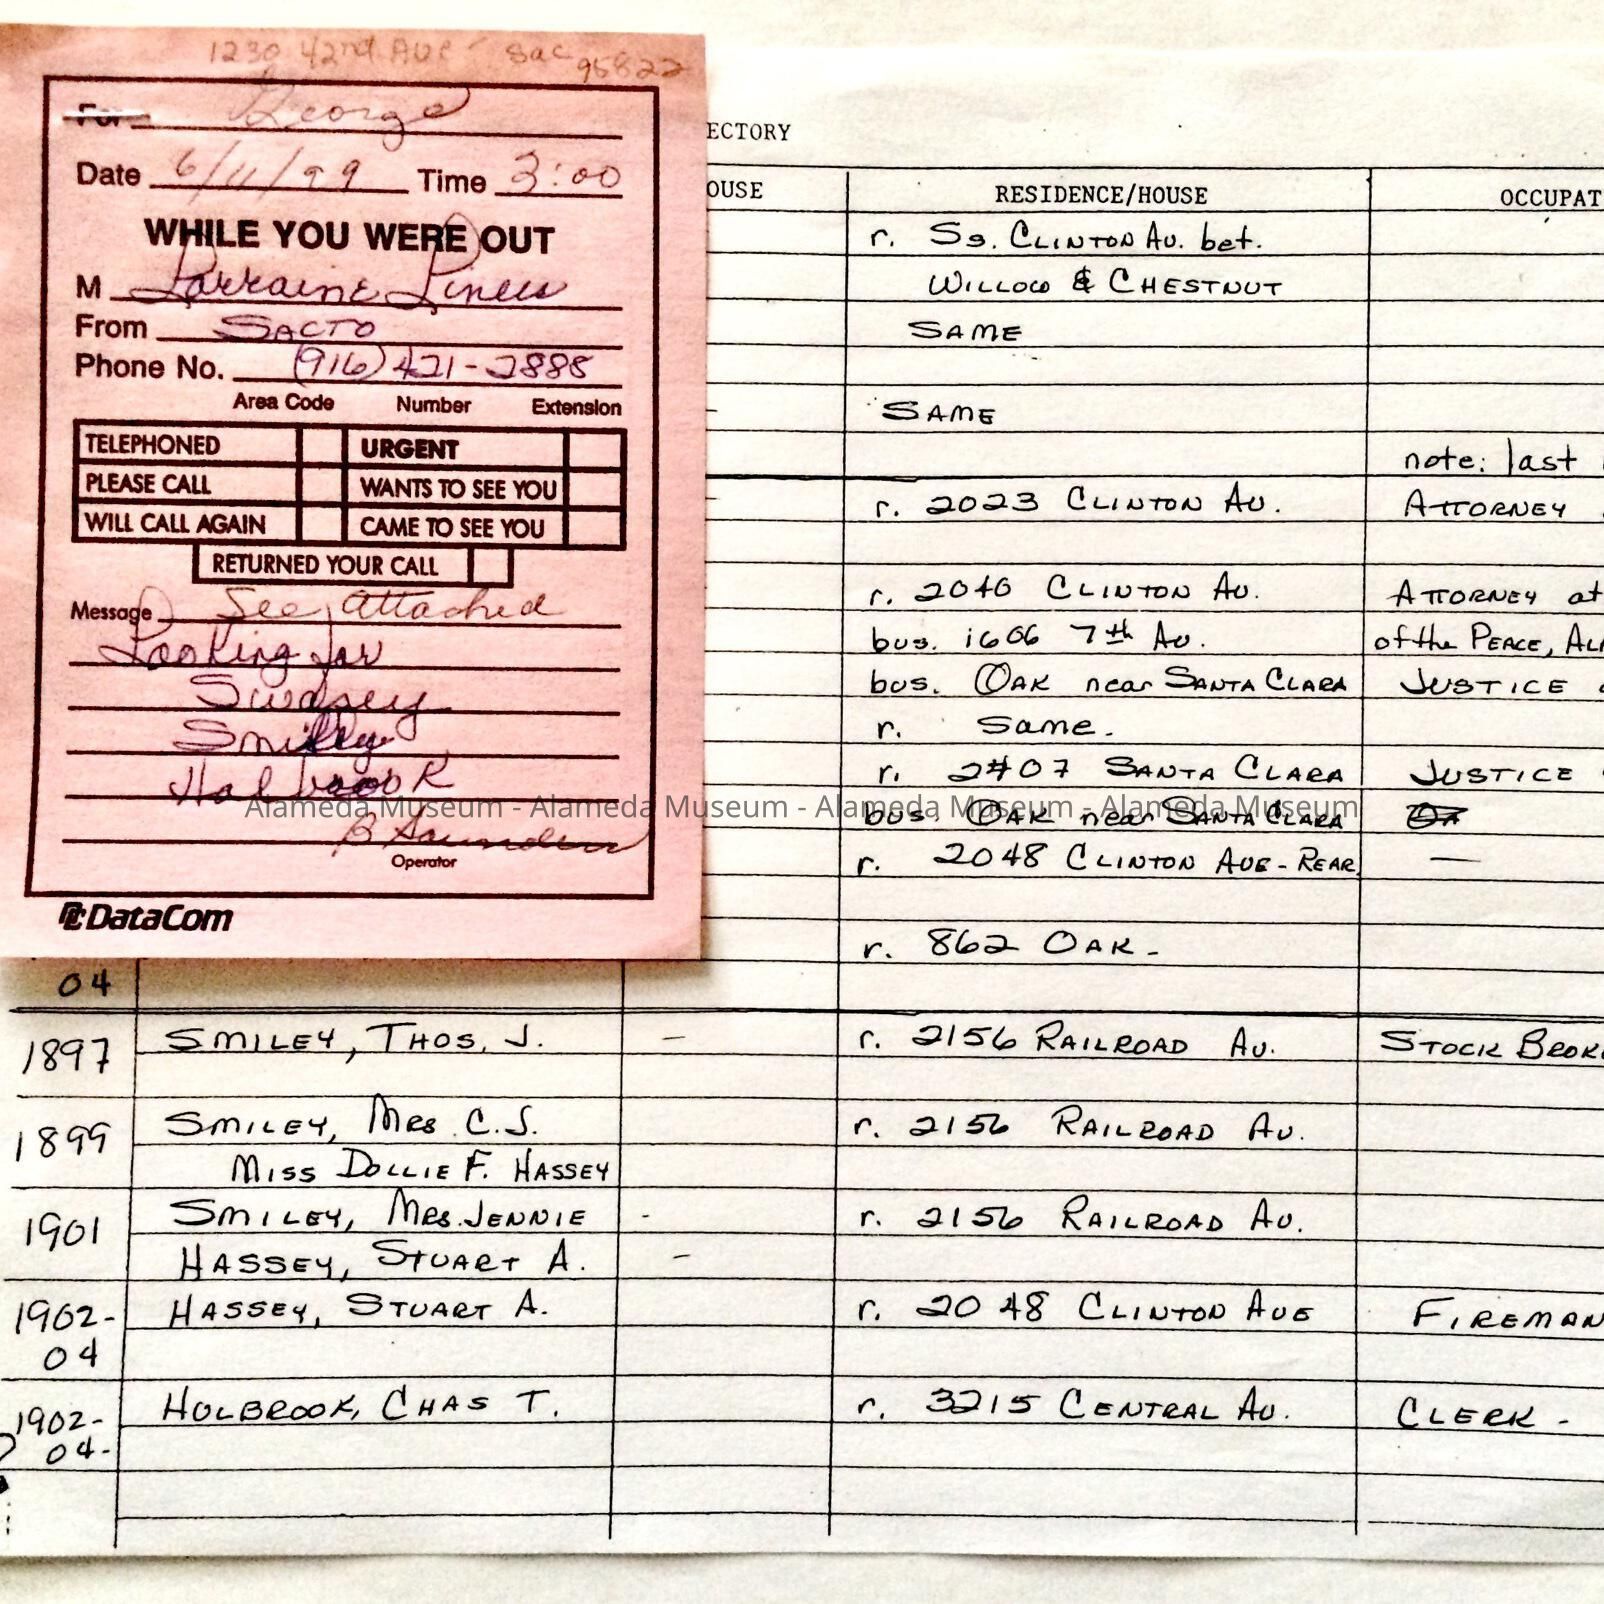 1230 42nd Ave Sac 95822
For George
Date 6/11/99 Time 3:00
WHILE YOU WERE OUT
M Lorraine
From SACTO
Phone No. (916) 421-2888
Area Code Number Extension
TELEPHONED URGENT
PLEASE CALL WANTS TO SEE YOU
WILL CALL AGAIN CAME TO SEE YOU
RETURNED YOUR CALL
Message See Attached
Looking for
Swasey
Smiley
Holbrook
B Saunders
Operator
DataCom
ECTORY
OUSE RESIDENCE/HOUSE OCCUPAT
r. Ss. CLINTON AV. bet.
WILLOW & CHESTNUT
SAME
SAME
note: last
r. 2023 CLINTON AV. ATTORNEY
r. 2040 CLINTON AV. ATTORNEY at
bus. 1606 7th AV. of the PEACE, AL
bus. OAK near SANTA CLARA JUSTICE
r. Same.
r. 2407 SANTA CLARA JUSTICE
bus OAK near SANTA CLARA
r. 2048 CLINTON AVE-REAR —
r. 862 OAK-
04
1897 SMILEY, THOS. J. – r. 2156 RAILROAD AV. STOCK BROK
1899 SMILEY, MRS C.J. r. 2156 RAILROAD AV.
MISS DOLLIE F. HASSEY
1901 SMILEY, MRS. JENNIE - r. 2156 RAILROAD AV.
HASSEY, STUART A. –
1902- HASSEY, STUART A. r. 2048 CLINTON AVE FIREMAN
04
1902- HOLBROOK, CHAS T. r. 3215 CENTRAL AV. CLERK -
04-
Alameda Museum - Alameda Museum - Alameda Museum - Alameda Museum